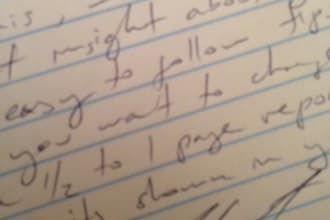 his,
insight about
easy to follow fig
you want to chang
1/2 to 1 page repo
shown in y